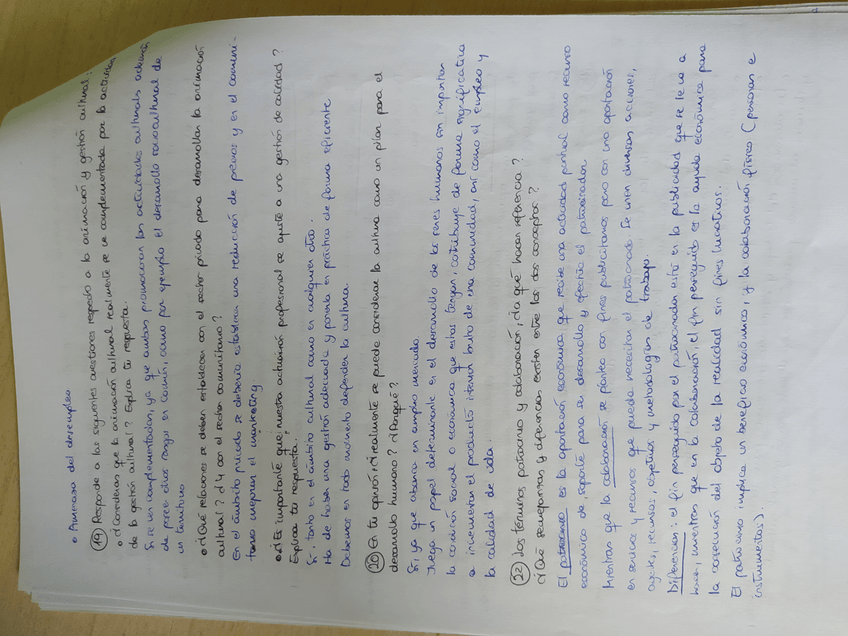 • Amenaza del desempleo
(19) Responde a las siguientes cuestiones respecto a la animación y gestión cultural:
• ¿Consideras que la animación cultural realmente se ve complementada por la actividad
de la gestión cultural? Explica tu respuesta.
Si se ven complementadas, ya que ambas promocionan las actividades culturales además
de poseer otros rasgos en común, como por ejemplo el desarrollo sociocultural de
un territorio
• ¿Qué relaciones se deben establecer con el sector privado para desarrollar la animación
cultural? ¿Y con el sector comunitario?
En el ámbito privado se debería establecer una reducción de precios y en el comuni-
tario mejorar el marketing
• ¿Es importante que nuestra actuación profesional se ajuste a una gestión de calidad?
Explica tu respuesta.
Sí, tanto en el ámbito cultural como en cualquier otro.
Ha de haber una gestión adecuada y ponerla en práctica de forma eficiente
Debemos en todo momento defender la cultura.
(20) En tu opinión, ¿realmente se puede considerar la cultura como un pilar para el
desarrollo humano? ¿Porqué?
Sí, ya que abarca un amplio mercado.
Juega un papel determinante en el desarrollo de los seres humanos sin importar
la condición social o económica que estos tengan, contribuye de forma significativa
a incrementar el producto interior bruto de una comunidad, así como el empleo y
la calidad de vida.
(22) Los términos patrocinio y colaboración, ¿a qué hacen referencia?
¿Qué semejanzas y diferencias existen entre los dos conceptos?
El patrocinio es la aportación económica que recibe una actividad puntual como recurso
económico de soporte para su desarrollo y ofrecido el patrocinador.
Mientras que la colaboración se plantea con fines publicitarios pero con una aportación
en servicios y recursos que pueda necesitar el patrocinado. Se unen diversas acciones,
ayudas, recursos, objetivos y metodologías de trabajo.
Diferencias: el fin perseguido por el patrocinador está en la publicidad que se le va a
hacer, mientras que en la colaboración, el fin perseguido es la ayuda económica para
la consecución del objeto de la realidad sin fines lucrativos.
El patrocinio implica un beneficio económico, y la colaboración físico (personas e
instrumentos).